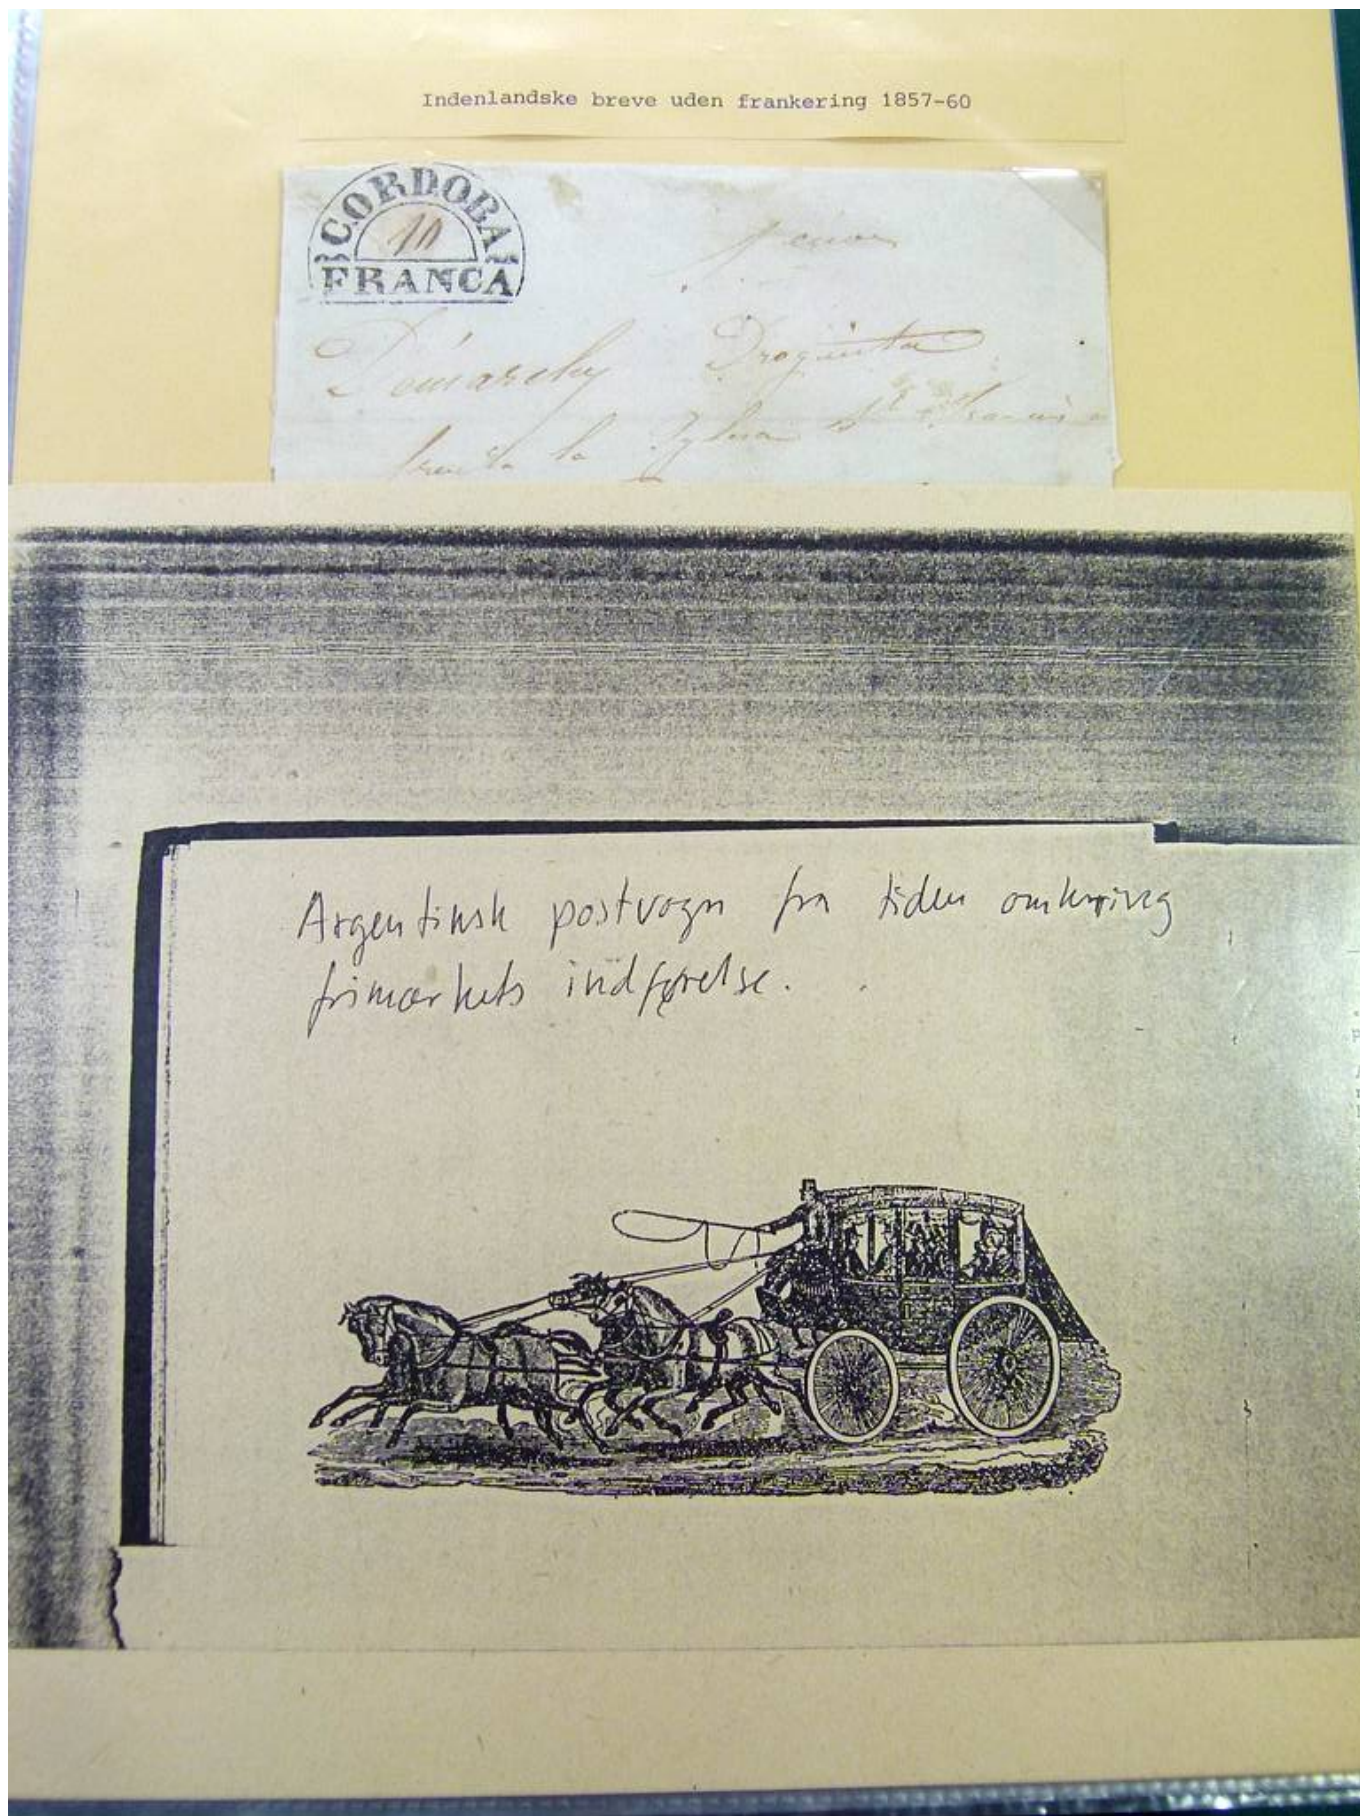 Indenlandske breve uden frankering 1857-60
CORDOBA
10
FRANCA
Demarchy Droguista
frente la
Argentinsk postvogn fra tiden omkring
frimærkets indførelse.